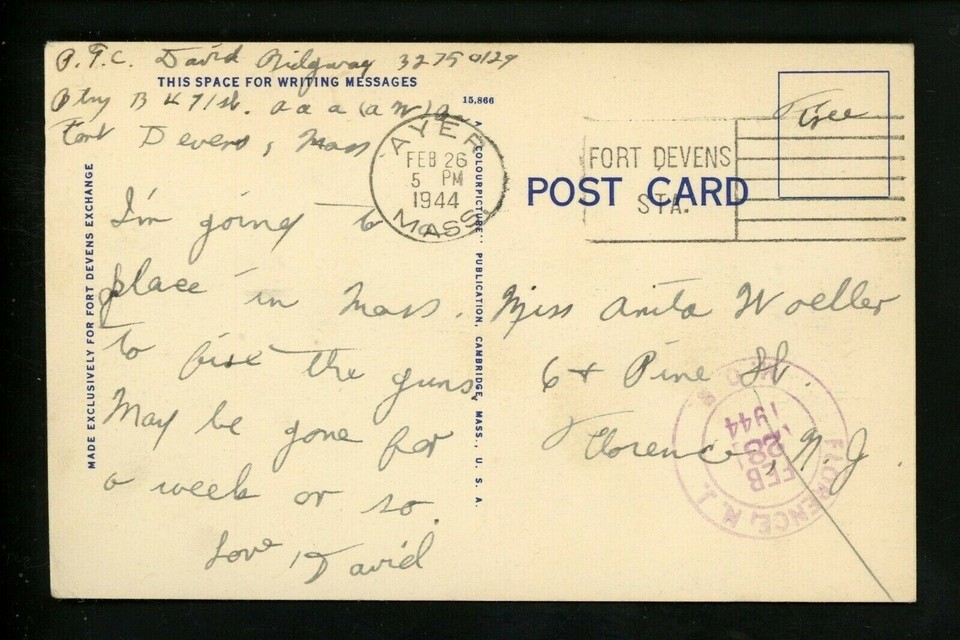 P.F.C. David Ridgway 32750129
THIS SPACE FOR WRITING MESSAGES
Btry B 471st. a a a (a W) Bn
Fort Devens, Mass.
15,866
MADE EXCLUSIVELY FOR FORT DEVENS EXCHANGE
I'm going to
place in Mass.
to fire the guns
May be gone for
a week or so.
Love David
A "COLOURPICTURE" PUBLICATION, CAMBRIDGE, MASS., U. S. A.
AYER
FEB 26
5 PM
1944
MASS.
FORT DEVENS
STA.
POST CARD
Free
Miss Anita Woeller
6th Pine St.
Florence, N.J.
FLORENCE, N. J.
FEB
28
1944